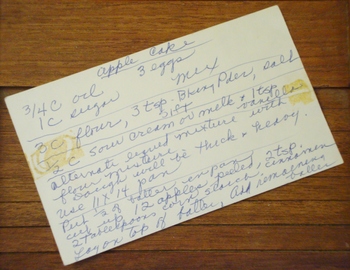 Apple Cake
3/4 C oil 3 eggs
1 C sugar Mix
3 C flour, 3 tsp. Bking Pder, salt
sift
1/2 C sour cream or milk + 1 tsp vanilla
alternate liquid mixture with
flour mixture
Dough will be thick & heavy.
Use 11x14 pan
Put 2/3 batter in pan
cut up 12 apples, peeled, 2 tsp. cinnamon
2 tablespoons corn starch
Lay on top of batter, add remaining
batter